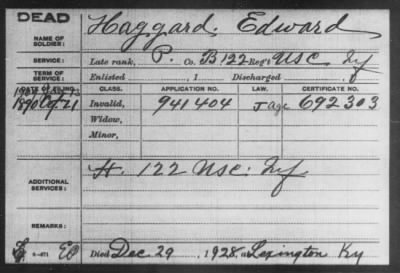 DEAD
NAME OF SOLDIER:
Haggard, Edward
SERVICE:
Late rank, P. Co. B 122 Reg't USC Inf
TERM OF SERVICE:
Enlisted , 1 Discharged
DATE OF FILING. CLASS. APPLICATION NO. LAW. CERTIFICATE NO.
1890 Oct 21 Invalid, 941404 J age 692303
Widow,
Minor,
ADDITIONAL SERVICES:
H. 122 USC: Inf
REMARKS:
3-471
Died Dec. 29, 1928, at Lexington Ky